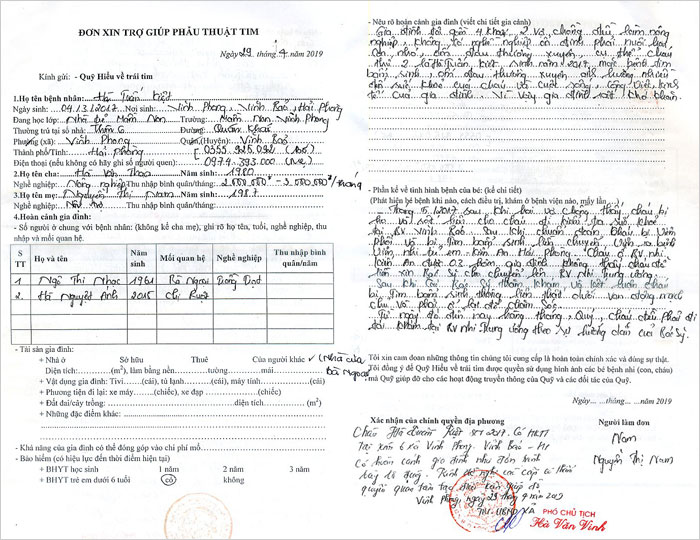 ĐƠN XIN TRỢ GIÚP PHẪU THUẬT TIM
Ngày 29 tháng 4 năm 2019
Kính gửi: - Quỹ Hiểu về trái tim
1.Họ tên bệnh nhân: Hà Tuấn Kiệt
Ngày sinh: 04.13.1.2017 Nơi sinh: Vĩnh Phong, Vĩnh Bảo, Hải Phòng
Đang học lớp: Nhà trẻ Mầm Non Trường: Mầm Non Vĩnh Phong
Thường trú tại số nhà: Thôn 6 Đường: Quán Khái
Phường (xã): Vĩnh Phong Quận(Huyện): Vĩnh Bảo
Thành phố/Tỉnh: Hải Phòng
Điện thoại (nếu không có hãy ghi số người quen): 0974.393.000 (Mẹ)
2.Họ tên cha: Hà Văn Thoa Năm sinh: 1980
Nghề nghiệp: Nông nghiệp Thu nhập bình quân/tháng: 2.000.000đ - 3.000.000đ/tháng
3.Họ tên mẹ: Nguyễn Thị Nam Năm sinh: 1987
Nghề nghiệp: Nội trợ Thu nhập bình quân/tháng:
4.Hoàn cảnh gia đình:
- Số người ở chung với bệnh nhân: (không kể cha mẹ), ghi rõ họ tên, tuổi, nghề nghiệp, thu
nhập và mối quan hệ.
S TT Họ và tên Năm sinh Mối quan hệ Nghề nghiệp Thu nhập bình quân/năm
1 Ngô Thị Nhạc 1961 Bà Ngoại
2. Hà Nguyệt Anh 2015 Chị Ruột
- Tài sản gia đình:
+ Nhà ở Sở hữu Thuê Của người khác ✓ (Nhà của bà Ngoại)
Diện tích: (m²), làm bằng nền tường mái
+ Vật dụng gia đình: Tivi (cái), tủ lạnh (cái), máy tính (cái)
+ Phương tiện đi lại: xe máy (chiếc), xe đạp (chiếc)
+ Đất đai/cây trồng: diện tích (m²)
+ Những đặc điểm khác:
- Khả năng của gia đình có thể đóng góp vào chi phí mổ
- Bảo hiểm (có hiệu lực đến thời điểm hiện tại)
+ BHYT học sinh 1 năm 2 năm 3 năm
+ BHYT trẻ em dưới 6 tuổi có không
- Nêu rõ hoàn cảnh gia đình (viết chi tiết gia cảnh)
Gia đình tôi có 4 khẩu, 2 vợ chồng đều làm nông
nghiệp, không có nghề nghiệp ổn định phải nuôi hai
con nhỏ, ốm đau thường xuyên, cụ thể cháu
thứ 2 là Hà Tuấn Kiệt sinh năm 2017, mắc bệnh tim
bẩm sinh, ốm đau thường xuyên ảnh hưởng nhiều
đến sức khoẻ của cháu và cuộc sống, công việc, kinh
tế của gia đình. Vì vậy gia đình rất khó khăn
- Phần kể về tình hình bệnh của bé: (kể chi tiết)
(Phát hiện bé bệnh khi nào, cách điều trị, khám ở bệnh viện nào, mấy lần
Tháng 5/2017 sau khi hai vợ chồng thấy cháu bị
ho và sốt nên cho cháu đi kiểm tra sức khoẻ
tại BV Vĩnh Bảo. Sau khi chuẩn đoán cháu bị Viêm
phổi và bị Tim bẩm sinh
An được 03 hôm gia đình không thấy cháu đỡ
nên xin Bác Sỹ cho chuyển lên BV Nhi Trung ương.
Sau khi các Bác Sỹ thăm khám và kết luận cháu
bị Tim bẩm sinh
Từ ngày đó đến nay hàng tháng, Quý, cháu đều phải đi
tái khám tại BV Nhi Trung ương theo sự hướng dẫn của Bác Sỹ.
Tôi xin cam đoan những thông tin chúng tôi cung cấp là hoàn toàn chính xác và đúng sự thật.
Tôi đồng ý để Quỹ Hiểu về trái tim được quyền sử dụng hình ảnh các bé bệnh nhi (con, cháu)
mà Quỹ giúp đỡ cho các hoạt động truyền thông của Quỹ và các đối tác của Quỹ.
Ngày... ...tháng... ...năm 2019
Xác nhận của chính quyền địa phương
Người làm đơn
Cháu Hà Tuấn Kiệt SN 2017. Có HKTT
Tại thôn 6 xã Vĩnh Phong. Vĩnh Bảo - HP
Có hoàn cảnh gia đình như đơn trình
bày là đúng. Kính đề nghị các cấp có thẩm
quyền quan tâm tạo điều kiện giúp đỡ
Vĩnh Phong, ngày 29 tháng 4 năm 2019
TM. UBND XÃ
PHÓ CHỦ TỊCH
Hà Văn Vinh
Nam
Nguyễn Thị Nam